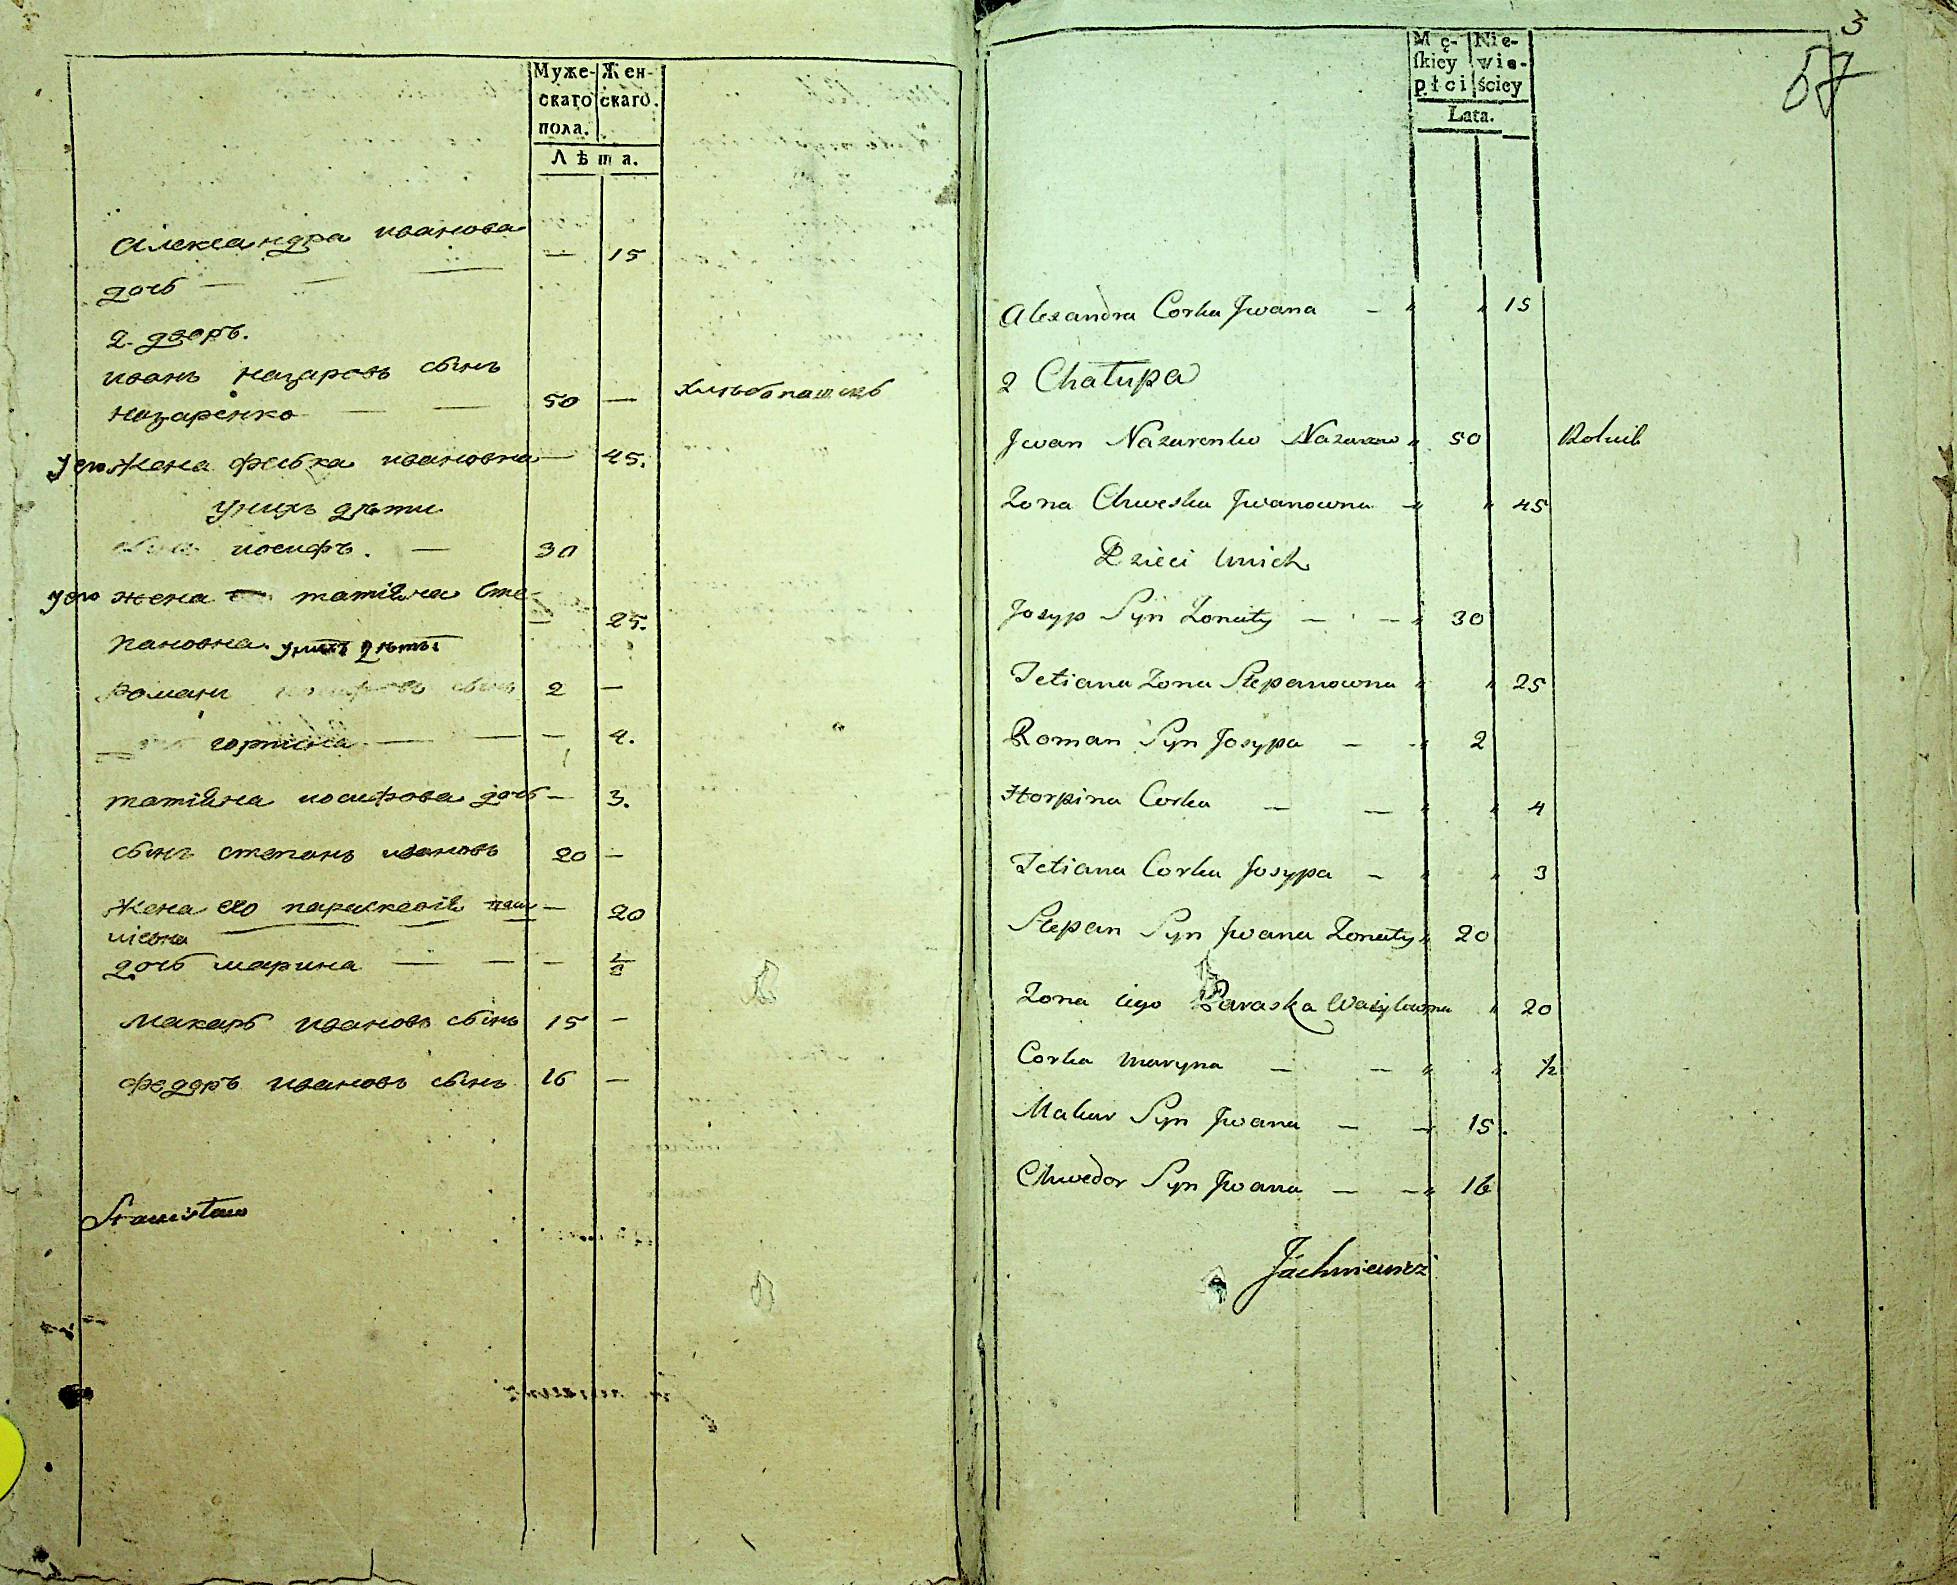 Муже- Жен-
скаго скаго.
пола.
Лѣта.
Александра иванова
дочь — — — — 15
2. дворъ.
иванъ назаровъ сынъ
назаренко — — 50 — хлѣбопашецъ
у его жена феська ивановна — 45.
у нихъ дѣти
сынъ иосифъ. — 30
у его жена татіяна Сте-
пановна. у нихъ дѣти 25.
романъ иосифовъ сынъ 2 —
горпина — — — 4.
татіяна иосифова дочь — 3.
сынъ степанъ ивановъ 20 —
Жена его параскевія васи — 20
ліевна
дочь марина — — — 1/2
макаръ ивановъ сынъ 15 —
феддръ ивановъ сынъ 16 —
Stanisław
3
57
Mę- Nie-
ſkiey wie-
płci ściey
Lata.
Alexandra Corka Jwana — " " 15
2 Chałupa
Jwan Nazarenko Nazarow " 50 Rolnik
Zona Chweska Jwanowna " " 45
Dzieci Unich
Josyp Syn Zonaty — — " 30
Tetiana Zona Stepanowna " " 25
Roman Syn Josypa — " 2
Horpina Corka — — " " 4
Tetiana Corka Josypa — " " 3
Stepan Syn Jwana Zonaty " 20
Zona iego Paraska Wasylowna " 20
Corka Maryna — — " " 1/2
Makar Syn Jwana — — 15.
Chwedor Syn Jwana — — " 16
Jachniewicz